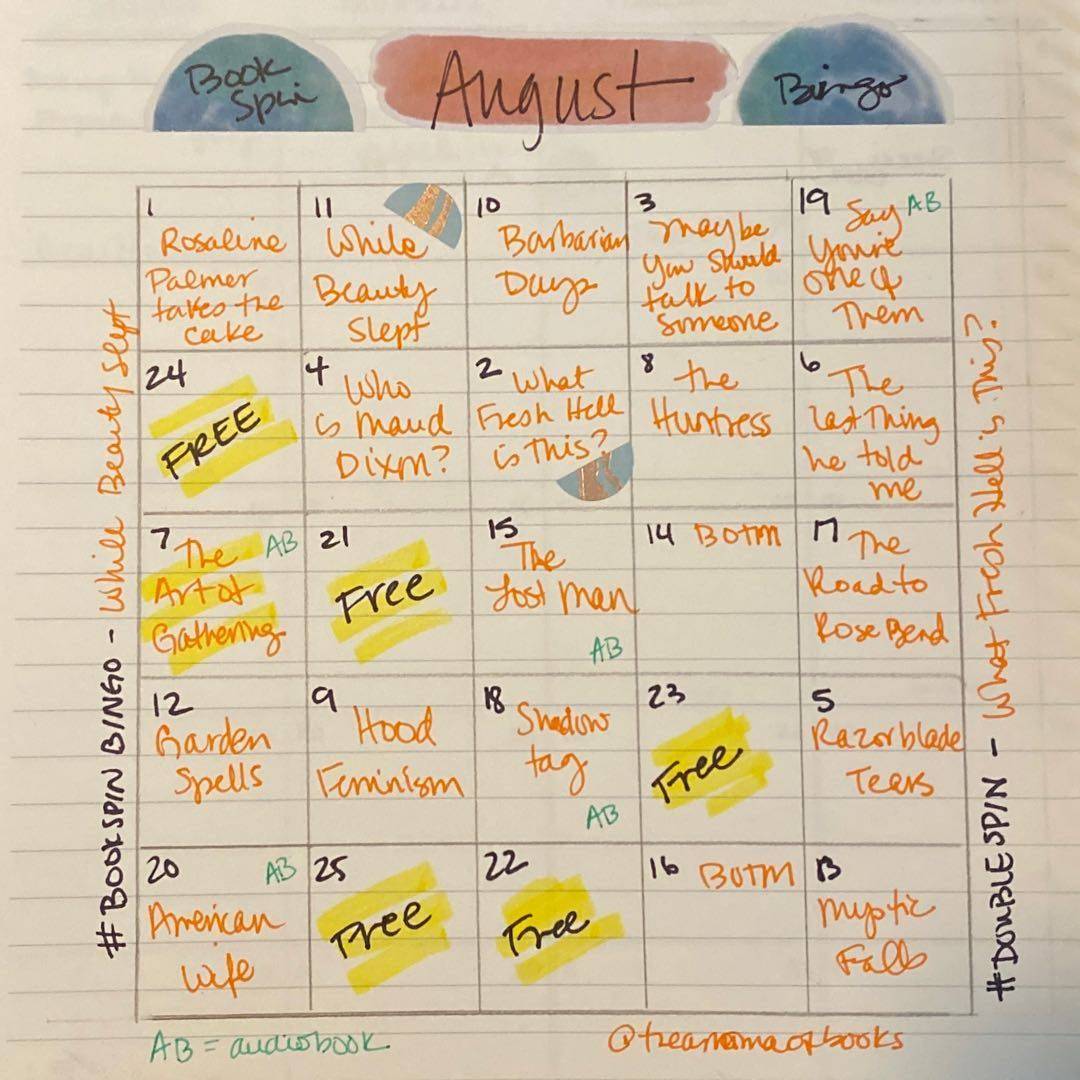 Book
Spin
August
Bingo
1
Rosaline
Palmer
takes the
cake
11
While
Beauty
Slept
10
Barbarian
Days
3
Maybe
you should
talk to
Someone
19 Say AB
You're
one of
Them
24
FREE
4 Who
is Maud
Dixon?
2 What
Fresh Hell
is This?
8 the
Huntress
6 The
Last Thing
he told
me
7 The AB
Art of
Gathering
21
Free
15
The
Lost Man
AB
14 BOTM
17 The
Road to
Rose Bend
12
Garden
Spells
9 Hood
Feminism
18 Shadow
tag
AB
23
Free
5
Razorblade
Tears
20 AB
American
Wife
25
Free
22
Free
16 BOTM
13
Mystic
Falls
#BOOKSPIN BINGO - While Beauty Slept
#DOUBLESPIN - What Fresh Hell is This?
AB = audiobook